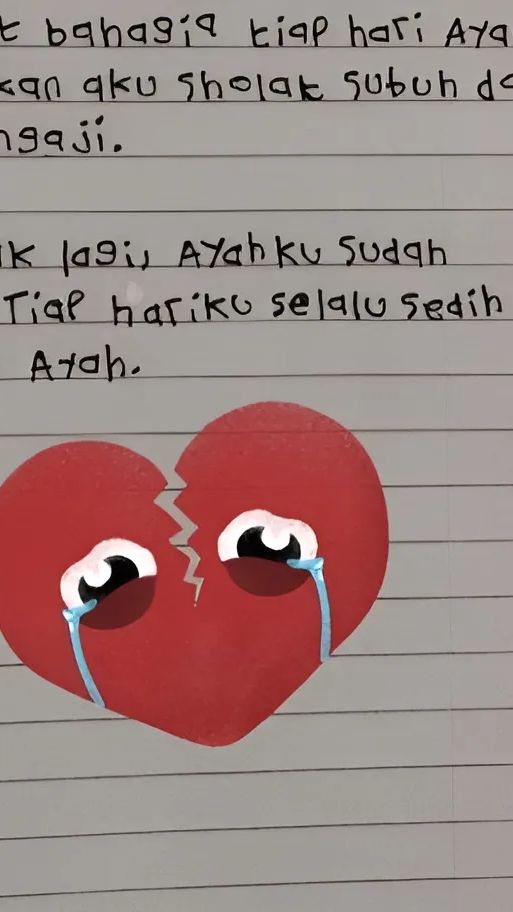 t bahagia tiap hari Aya
kan aku sholat subuh da
ngaji.
k lagi, Ayahku sudah
Tiap hariku selalu sedih
Ayah.